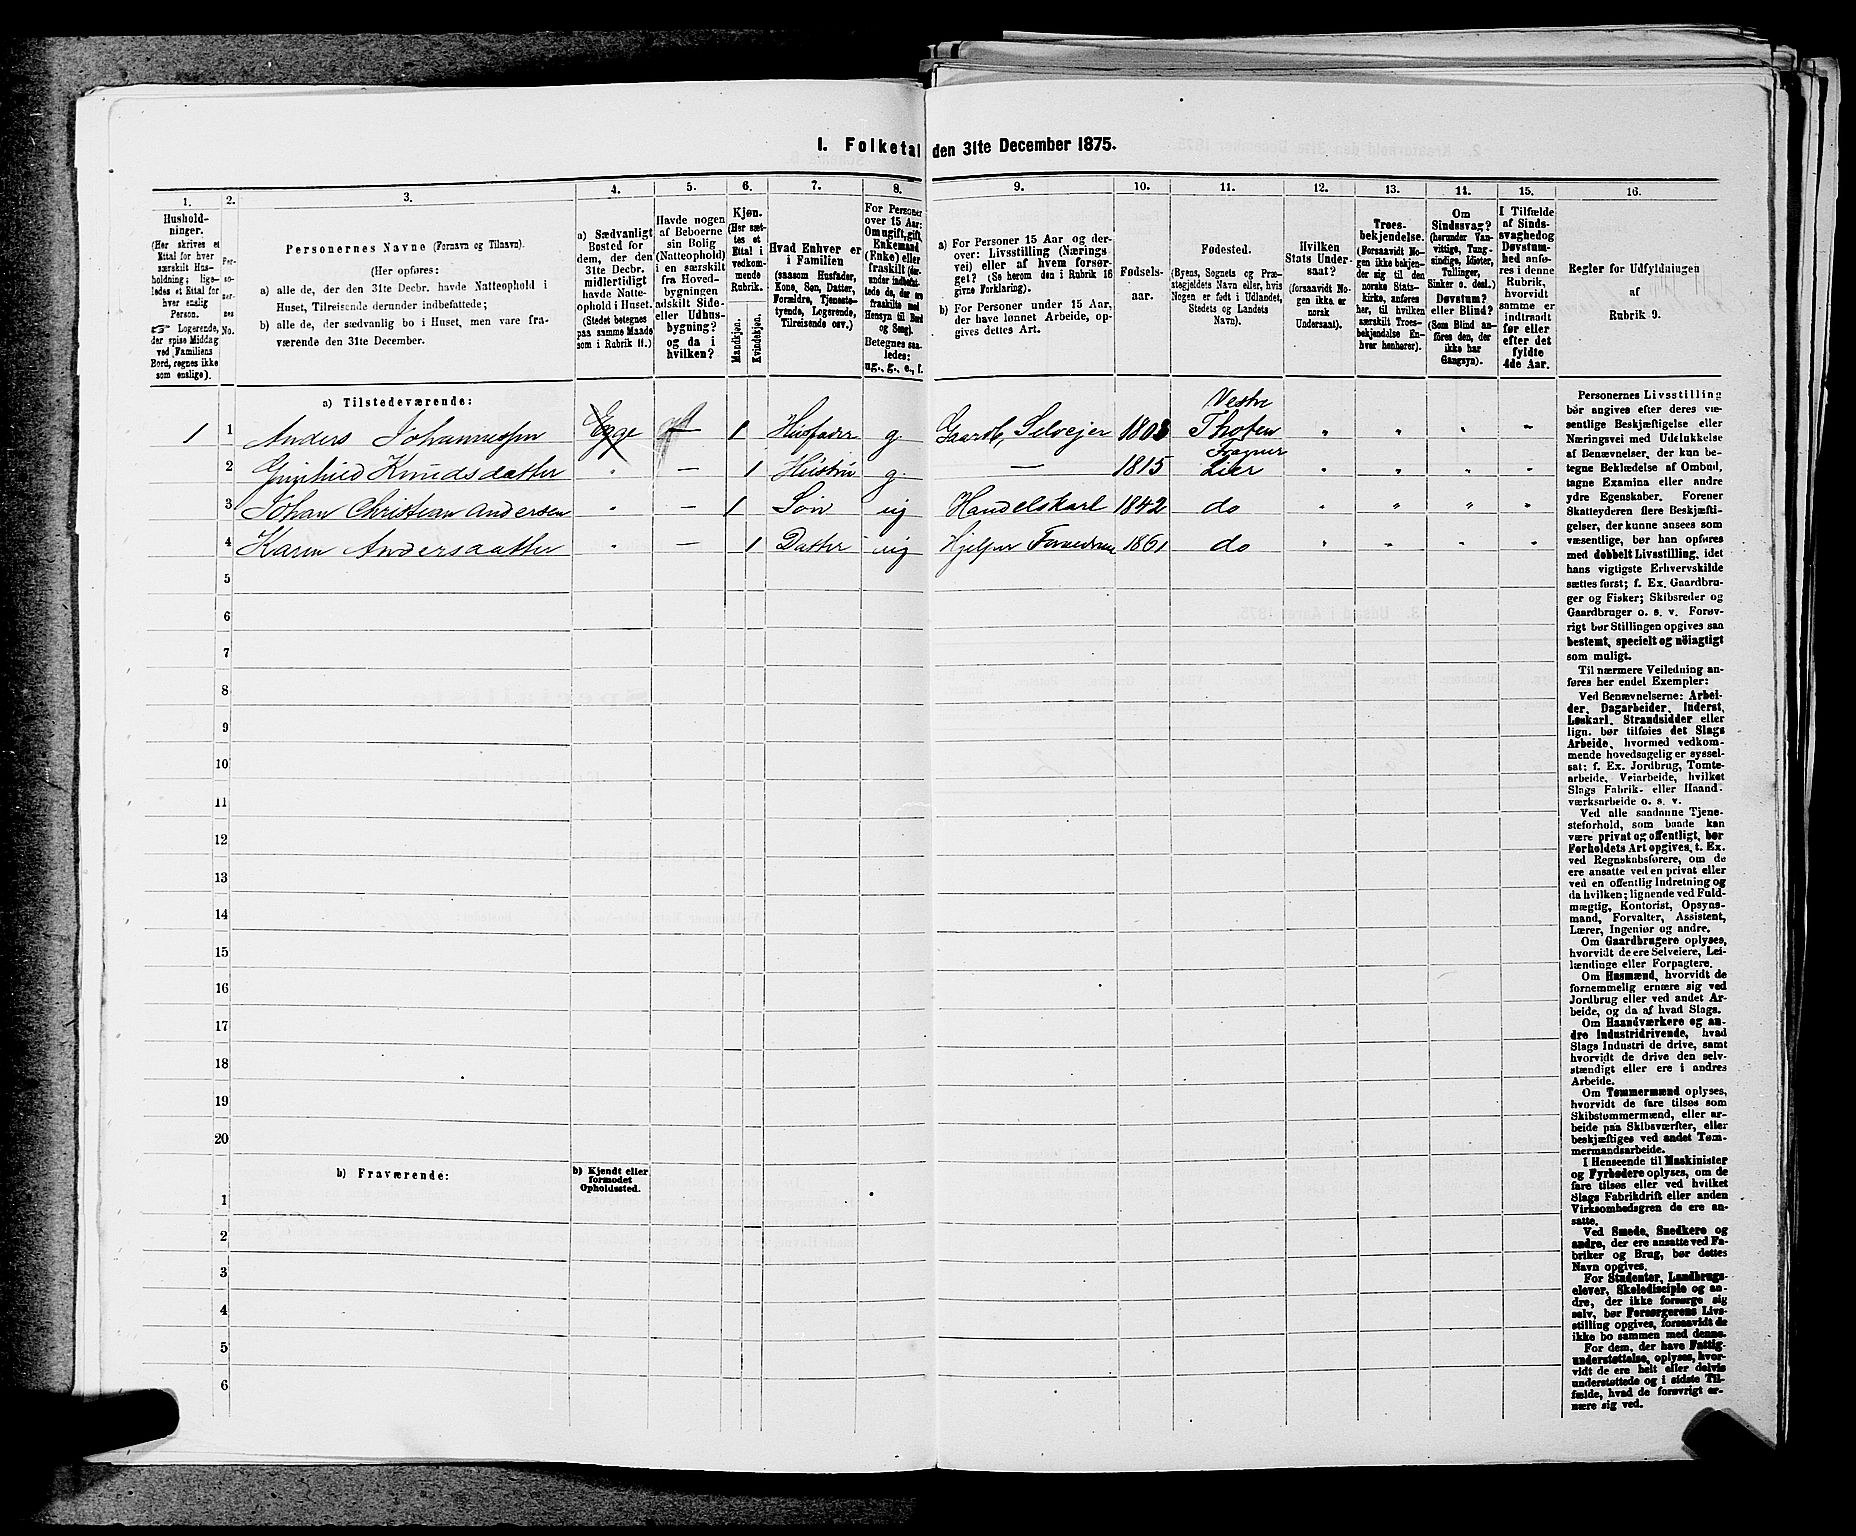 I. Folketal den 31te December 1875.
1. 2. 3. 4. 5. 6. 7. 8. 9. 10. 11. 12. 13. 14. 15. 16.
Hushold-
ninger.
(Her skrives et
Ettal for hver
særskilt Hus-
holdning; lige-
ledes et Ettal for
hver enslig
Person.
☞ Logerende,
der spise Middag
ved Familiens
Bord, regnes ikke
som enslige).
Per-
so-
ner-
nes
No.
Personernes Navne (Fornavn og Tilnavn).
(Her opføres:
a) alle de, der den 31te Decbr. havde Natteophold i
Huset, Tilreisende derunder indbefattede;
b) alle de, der sædvanlig bo i Huset, men vare fra-
værende den 31te December.
a) Sædvanligt
Bosted for
dem, der den
31te Decbr.
midlertidigt
havde Natte-
ophold i Huset.
(Stedet betegnes
paa samme Maade
som i Rubrik 11.)
Havde nogen
af Beboerne
sin Bolig
(Natteophold)
i en særskilt
fra Hoved-
bygningen
adskilt Side-
eller Udhus-
bygning?
og da i
hvilken?
Kjøn.
(Her sæt-
tes et
Ettal i
vedkom-
mende
Rubrik.
Mandkjøn.
Kvindekjøn.
Hvad Enhver er
i Familien
(saasom Husfader,
Kone, Søn, Datter,
Forældre, Tjeneste-
tyende, Logerende,
Tilreisende osv.)
For Personer
over 15 Aar:
Om ugift, gift,
Enkemand
(Enke) eller
fraskilt (der-
under indbefat-
tede de, der ere
fraskilte med
Hensyn til Bord
og Seng).
Betegnes saa-
ledes:
ug., g., e., f.
a) For Personer 15 Aar og der-
over: Livsstilling (Nærings-
vei) eller af hvem forsør-
get? (Se herom den i Rubrik 16
givne Forklaring).
b) For Personer under 15 Aar,
der have lønnet Arbeide, op-
gives dettes Art.
Fødsels-
aar.
Fødested.
(Byens, Sognets og Præ-
stegjeldets Navn, eller, hvis
Nogen er født i Udlandet,
Stedets og Landets
Navn).
Hvilken
Stats Under-
saat?
(forsaavidt No-
gen ikke er
norsk
Undersaat).
Troes-
bekjendelse.
(Forsaavidt No-
gen ikke bekjen-
der sig til den
norske Stats-
kirke, anføres
her, til hvilken
særskilt Troes-
bekjendelse En-
hver henhører).
Om
Sindssvag?
(herunder Van-
vittige, Tung-
sindige, Idioter,
Tullinger,
Sinker o. desl.)
Døvstum?
eller Blind?
(Som Blind an-
føres den, der
ikke har
Gangsyn).
I Tilfælde
af Sinds-
svaghed og
Døvstum-
hed anfø-
res i denne
Rubrik,
hvorvidt
samme er
indtraadt
før eller
efter det
fyldte
4de Aar.
Regler for Udfyldningen
af
Rubrik 9.
a) Tilstedeværende:
1 1 Anders Johannesen Egge 1 Husfader g. Gaardb. Selvejer 1808 Vestre Thoten
2 Gunhild Knudsdatter " — 1 Hustru g. — 1815 Lier
3 Johan Christian Andersen " — 1 Søn ug Handelskarl 1842 do
4 Karen Andersdatter " — 1 Datter ug Hjelper Forældrene 1861 do
5
6
7
8
9
10
11
12
13
14
15
16
17
18
19
20
b) Fraværende:
b) Kjendt eller
formodet
Opholdssted.
1
2
3
4
5
6
Personernes Livsstilling
bør angives efter deres væ-
sentlige Beskjæftigelse eller
Næringsvei med Udelukkelse
af Benævnelser, der kun be-
tegne Beklædelse af Ombud,
tagne Examina eller andre
ydre Egenskaber. Forener
Skatteyderen flere Beskjæfti-
gelser, der kunne ansees som
væsentlige, bør han opføres
med dobbelt Livsstilling, idet
hans vigtigste Erhvervskilde
sættes først; f. Ex. Gaardbru-
ger og Fisker; Skibsreder og
Gaardbruger o. s. v. Forøv-
rigt bør Stillingen opgives saa
bestemt, specielt og nøiagtigt
som muligt.
Til nærmere Veiledning an-
føres her endel Exempler:
Ved Benævnelserne: Arbei-
der, Dagarbeider, Inderst,
Løskarl, Strandsidder eller
lign. bør tilføies det Slags
Arbeide, hvormed vedkom-
mende hovedsagelig er syssel-
sat; f. Ex. Jordbrug, Tomte-
arbeide, Veiarbeide, hvilket
Slags Fabrik- eller Haand-
værksarbeide o. s. v.
Ved alle saadanne Tjene-
steforhold, som baade kan
være privat og offentligt, bør
Forholdets Art opgives, f. Ex.
ved Regnskabsførere, om de
ere ansatte ved en privat eller
ved en offentlig Indretning og
da hvilken; lignende ved Fuld-
mægtig, Kontorist, Opsyns-
mand, Forvalter, Assistent,
Lærer, Ingeniør og andre.
Om Gaardbrugere oplyses,
hvorvidt de ere Selveiere, Lei-
lændinge eller Forpagtere.
Om Husmænd, hvorvidt de
fornemmelig ernære sig ved
Jordbrug eller ved andet Ar-
beide, og da af hvad Slags.
Om Haandværkere og an-
dre Industridrivende, hvad
Slags Industri de drive, samt
hvorvidt de drive den selv-
stændigt eller ere i andres
Arbeide.
Om Tømmermænd oplyses,
hvorvidt de fare tilsøs som
Skibstømmermænd, eller ar-
beide paa Skibsværfter, eller
beskjæftiges ved andet Tøm-
mermandsarbeide.
I Henseende til Maskinister
og Fyrbødere oplyses, om de
fare tilsøs eller ved hvilket
Slags Fabrikdrift eller anden
Virksomhedsgren de ere an-
satte.
Ved Smede, Snedkere og
andre, der ere ansatte ved Fa-
briker og Brug, bør dettes
Navn opgives.
For Studenter, Landbrugs-
elever, Skoledisciple og an-
dre, der ikke forsørge sig
selv, bør Forsørgerens Livs-
stilling opgives, forsaavidt de
ikke bo sammen med denne.
For dem, der have Fattig-
understøttelse, oplyses, hvor-
vidt de ere helt eller delvis
understøttede og i sidste Til-
fælde, hvad de forøvrigt er-
nære sig ved.